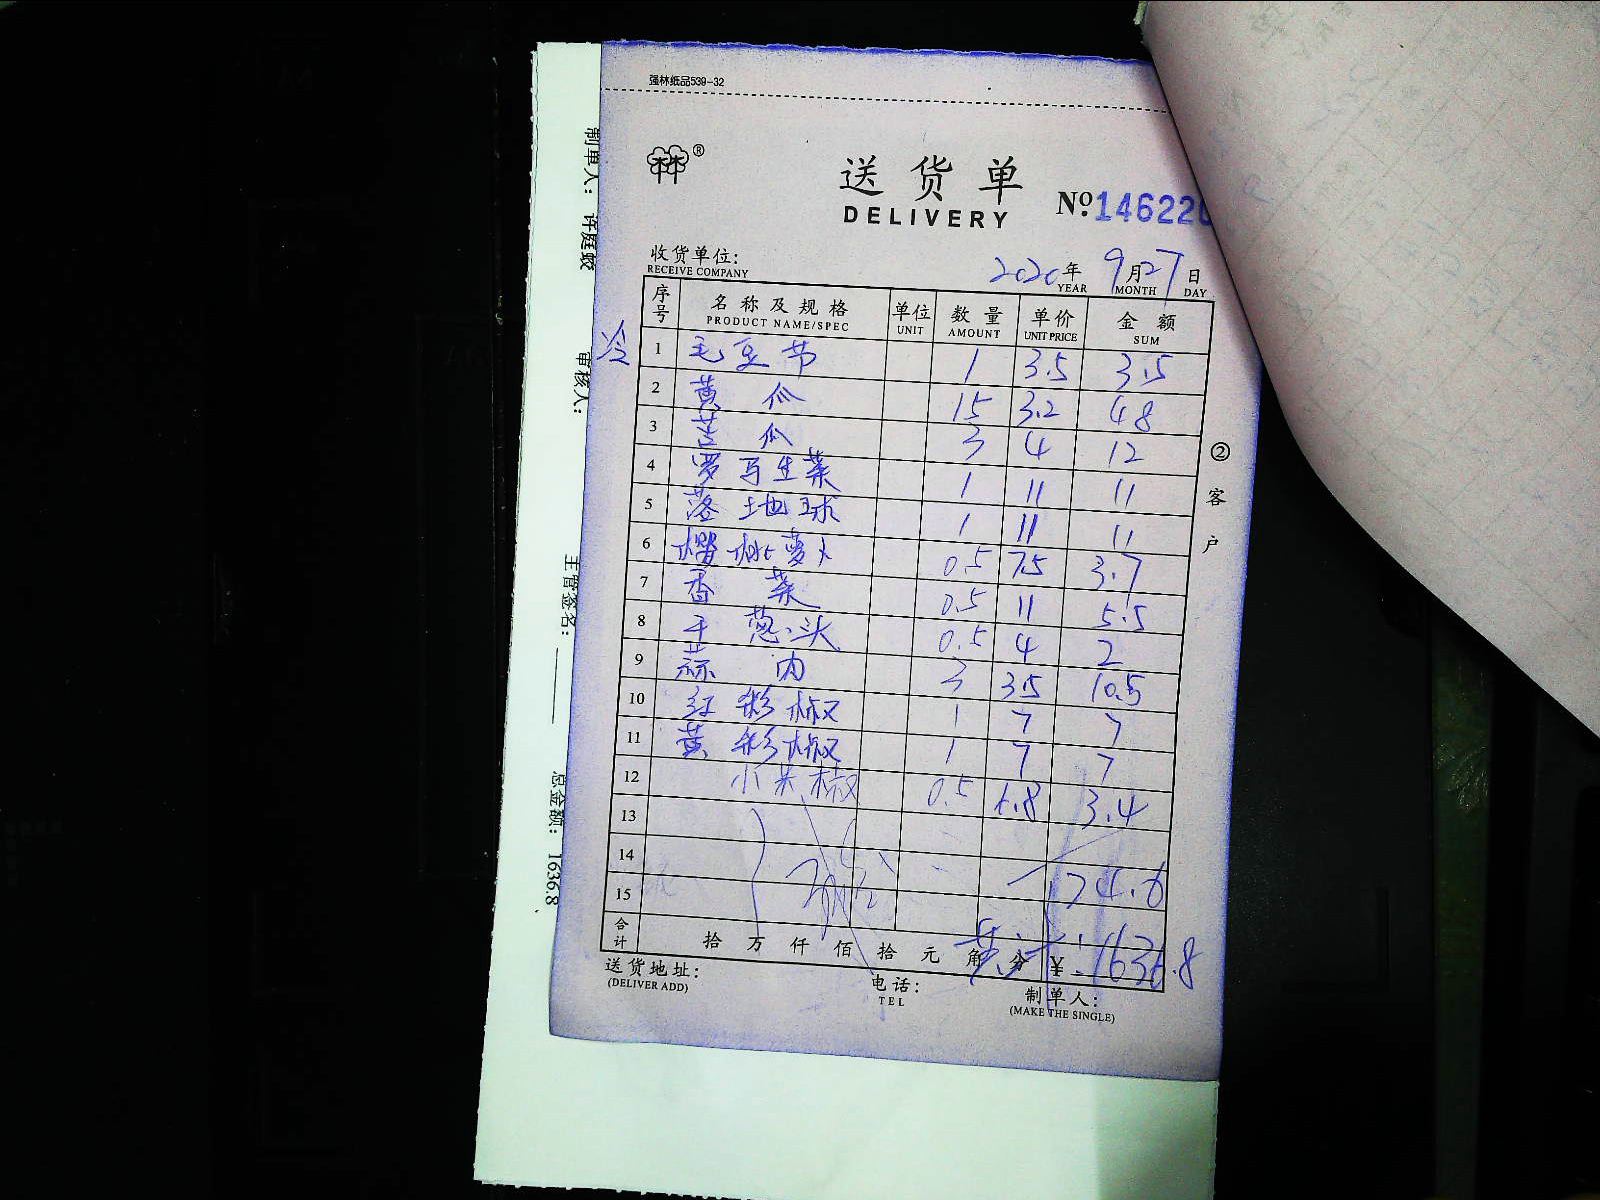 强林纸品539-32
送货单
DELIVERY
№146220
收货单位:
RECEIVE COMPANY
2020年 9月27日
YEAR MONTH DAY
序号 名称及规格 单位 数量 单价 金额
PRODUCT NAME/SPEC UNIT AMOUNT UNIT PRICE SUM
冷
1 毛豆节 1 3.5 3.5
2 黄瓜 15 3.2 48
3 苦瓜 3 4 12
4 罗马生菜 1 11 11
5 落地球 1 11 11
6 樱桃萝卜 0.5 7.5 3.7
7 香菜 0.5 11 5.5
8 干葱头 0.5 4 2
9 蒜肉 3 3.5 10.5
10 红彩椒 1 7 7
11 黄彩椒 1 7 7
12 小米椒 0.5 6.8 3.4
13
14
15
合计 拾 万 仟 佰 拾 元 角 分 ¥:1636.8
送货地址:
(DELIVER ADD)
电话:
TEL
制单人:
(MAKE THE SINGLE)
②客户
制单人: 许庭蛟
审核人:
主管签名:
总金额: 1636.8